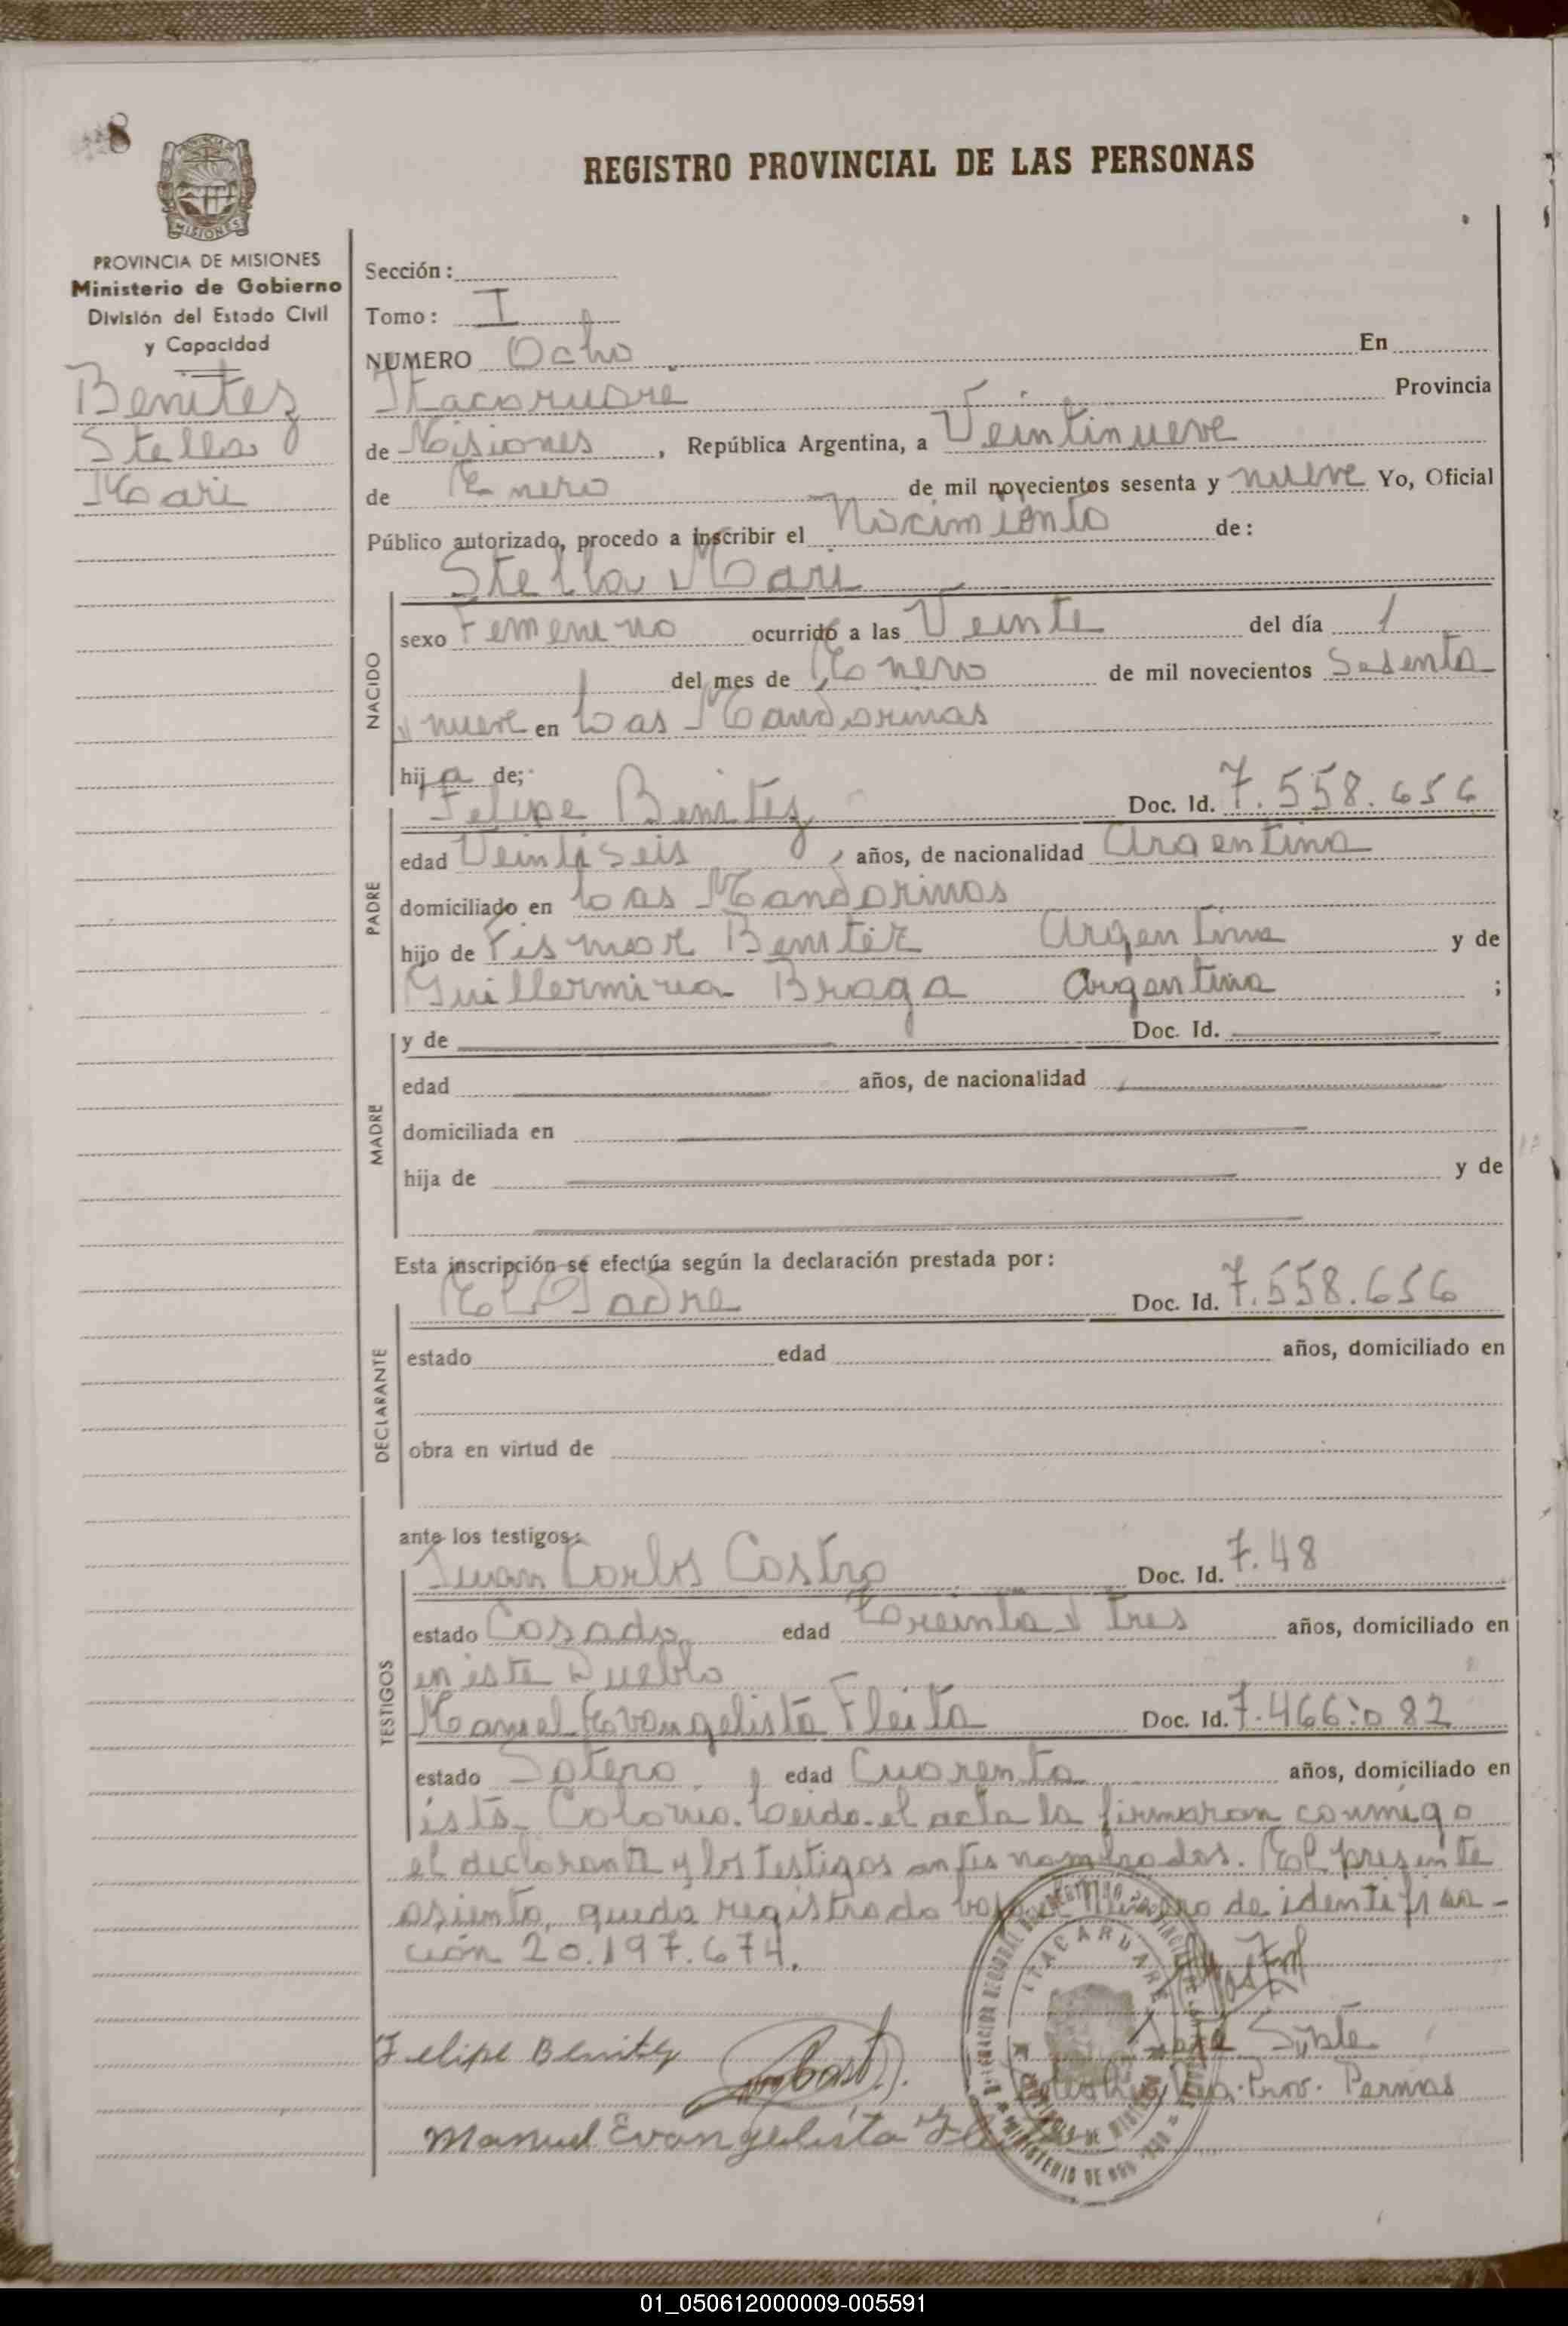 8
REGISTRO PROVINCIAL DE LAS PERSONAS
MISIONES
PROVINCIA DE MISIONES
Ministerio de Gobierno
División del Estado Civil
y Capacidad
Benitez
Stella
Mari
Sección:
Tomo: I
NUMERO Ocho En
Itacaruaré Provincia
de Misiones, República Argentina, a Veintinueve
de Enero de mil novecientos sesenta y nueve Yo, Oficial
Público autorizado, procedo a inscribir el Nacimiento de:
Stella Mari
NACIDO
sexo Femenino ocurrido a las Veinte del día 1
del mes de Enero de mil novecientos Sesenta
y nueve en Las Mandarinas
hija de;
PADRE
Felipe Benitez Doc. Id. 7.558.656
edad Veintiseis, años, de nacionalidad Argentina
domiciliado en Las Mandarinas
hijo de Fismar Benitez Argentina y de
Guillermina Braga Argentina ;
MADRE
y de Doc. Id.
edad años, de nacionalidad
domiciliada en
hija de y de
Esta inscripción se efectúa según la declaración prestada por:
DECLARANTE
El Padre Doc. Id. 7.558.656
estado edad años, domiciliado en
obra en virtud de
ante los testigos:
TESTIGOS
Juan Carlos Castro Doc. Id. 7.48
estado Casado edad Treinta y tres años, domiciliado en
en este Pueblo
Manuel Evangelista Fleita Doc. Id. 7.466.082
estado Soltero edad Cuarenta años, domiciliado en
ista Colonia. Leida el acta la firmaron conmigo
el declarante y los testigos antes nombrados. El presente
asiento, queda registrado bajo el Número de identifica-
ción 20.197.674.
ITACARUARE
Felipe Benitez
Prov. Personas
Manuel Evangelista
MINISTERIO DE
01_050612000009-005591